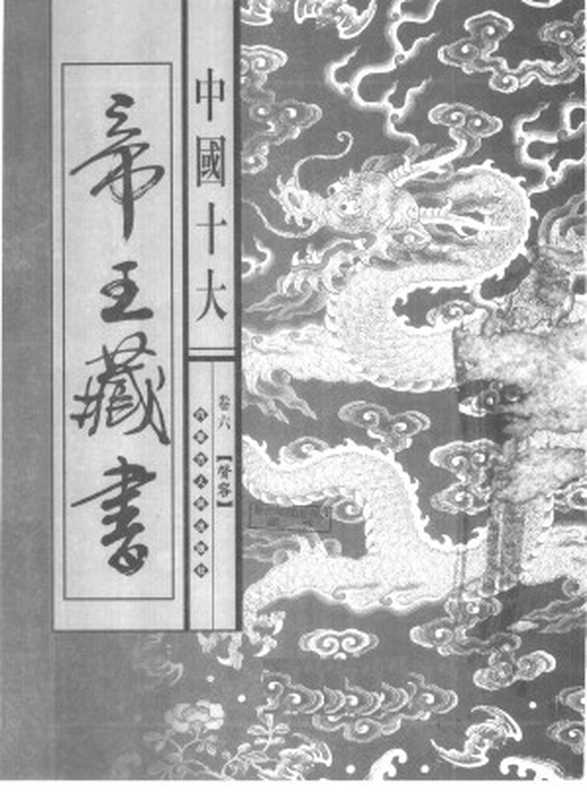 中國十大
帝王藏書
卷六